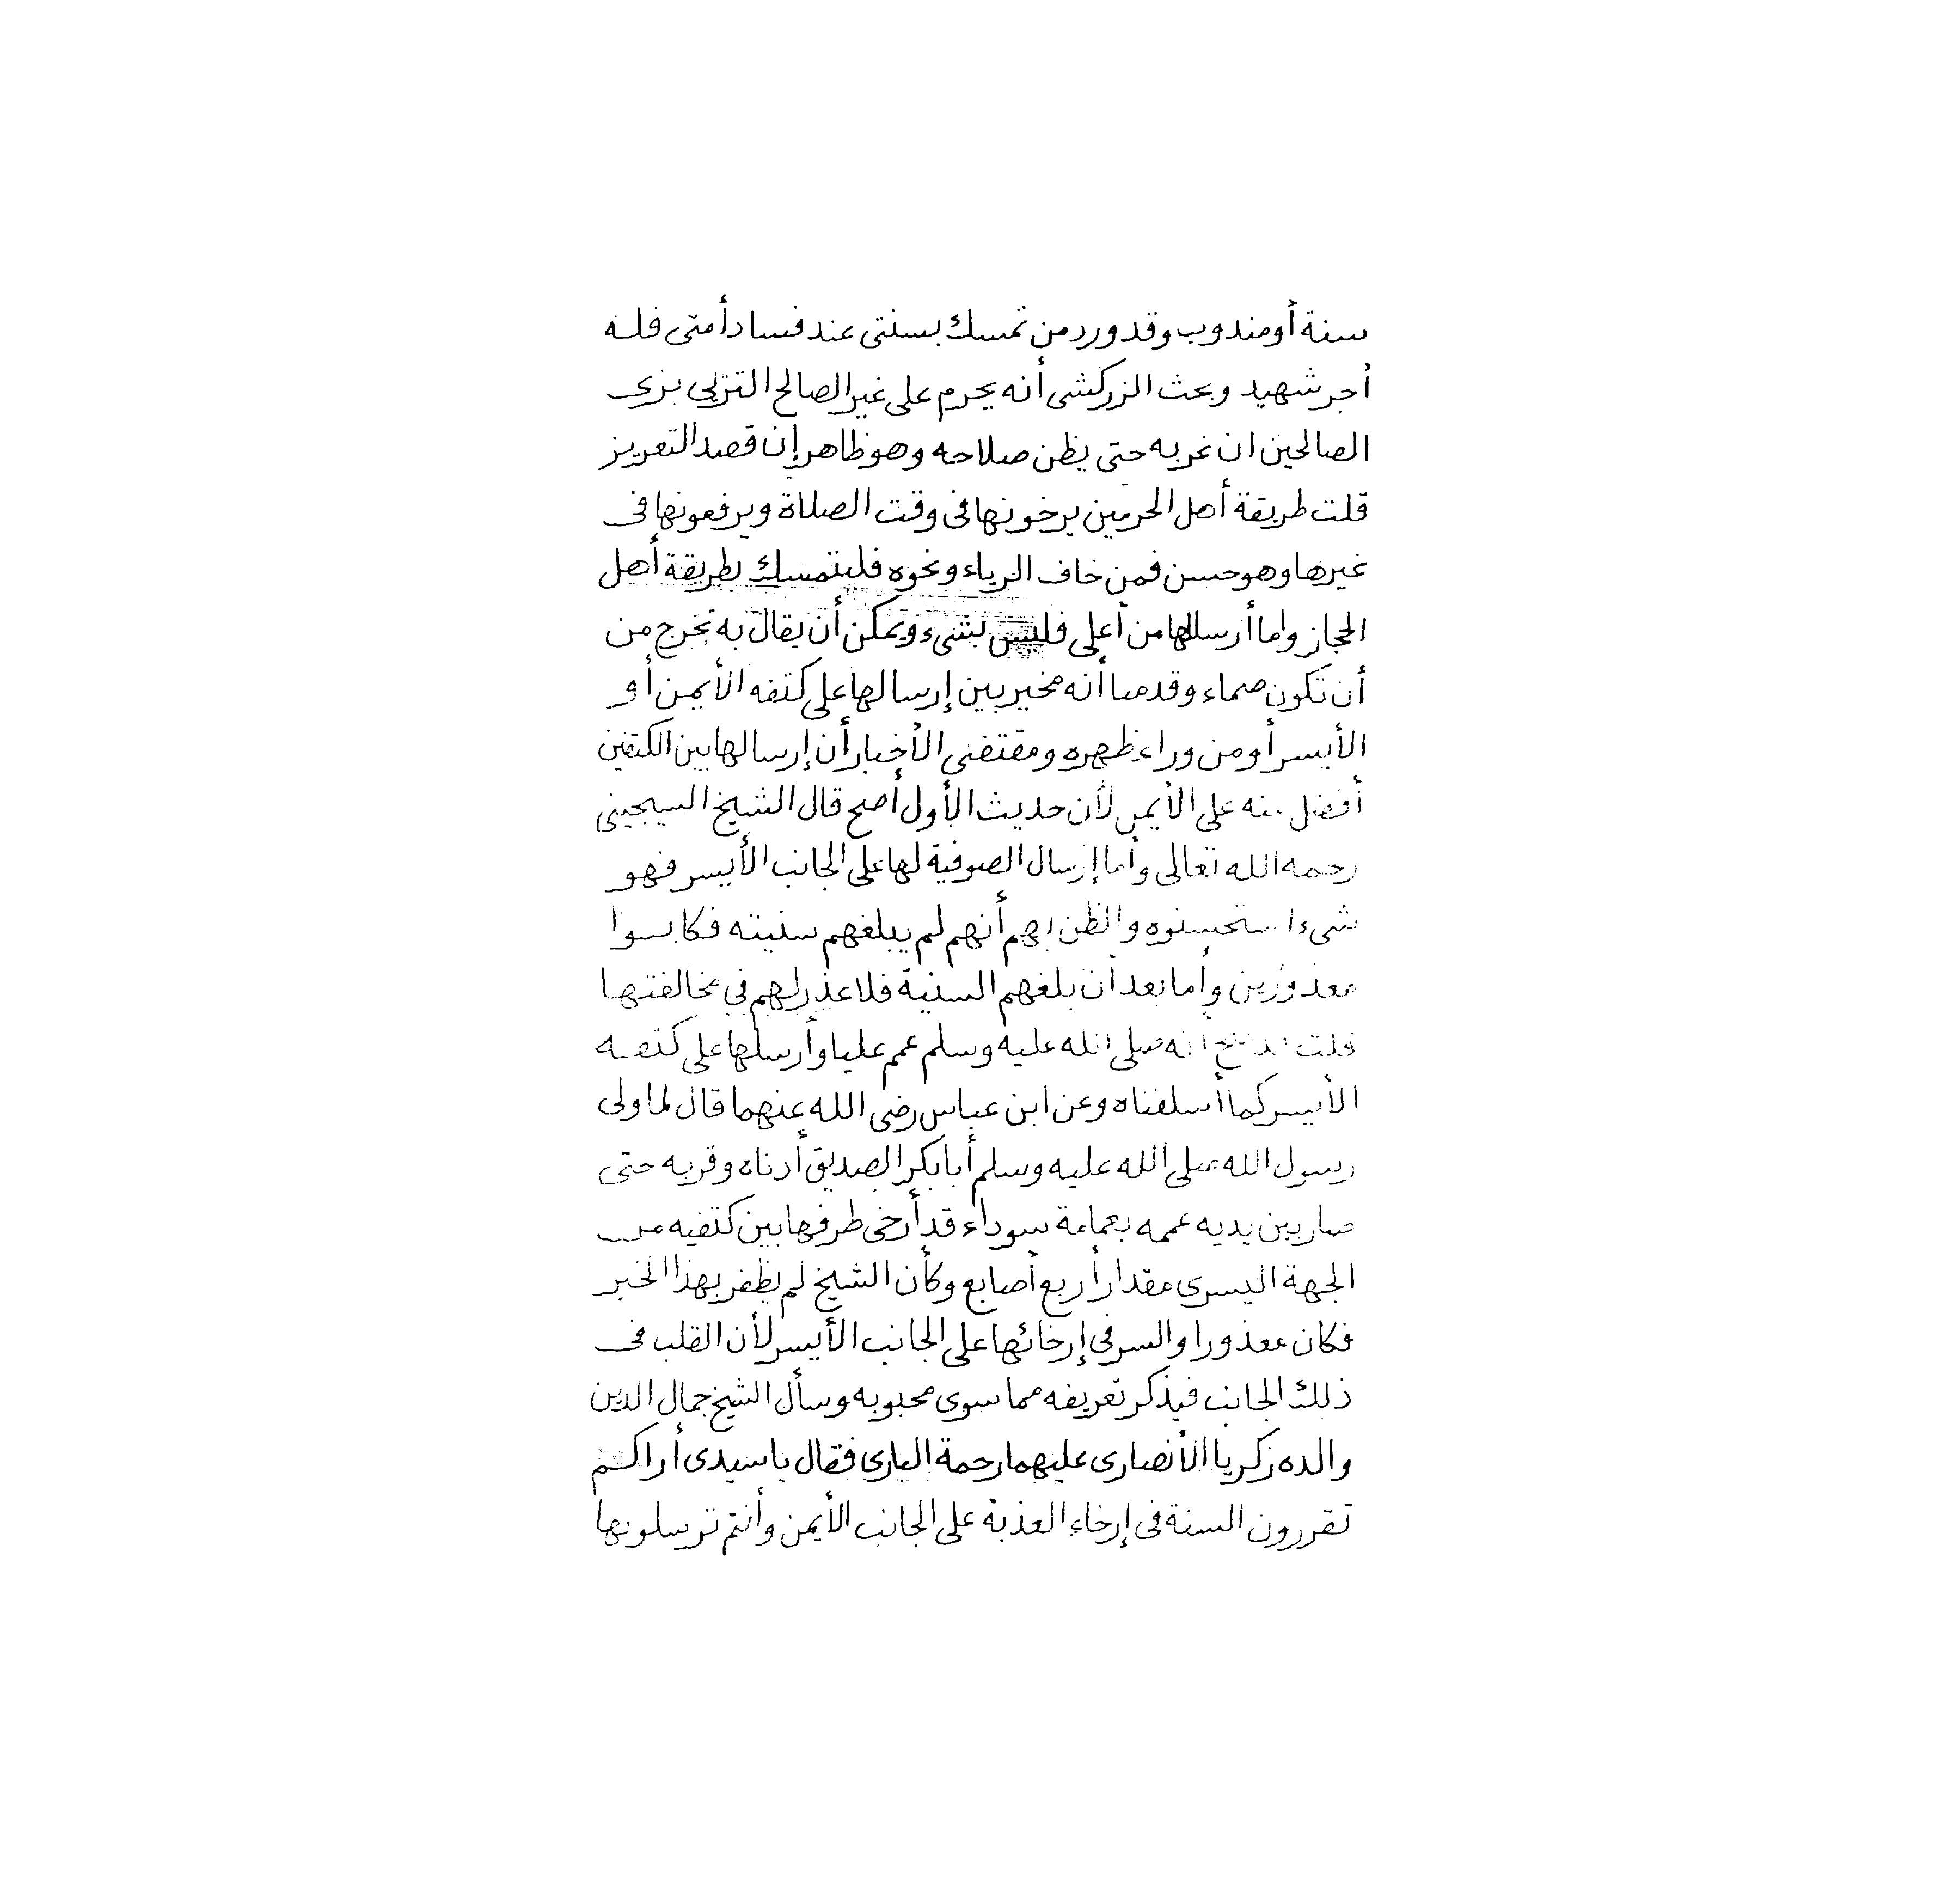 سنة أو مندوب وقد ورد من تمسك بسنتى عند فساد أمتى فله
أجر شهيد وبحث الزركشى أنه يحرم على غير الصالح التزيى بزى
الصالحين ان غر به حتى يظن صلاحه وهو ظاهر إن قصد التعزيز
قلت طريقة أهل الحرمين يرخونها فى وقت الصلاة ويرفعونها فى
غيرها وهو حسن فمن خاف الرياء ونحوه فليتمسك بطريقة أهل
الحجاز واما أرسالها من أعلى فليس بشىء ويمكن أن يقال به تخرج من
أن تكون صماء وقدمنا أنه مخير بين إرسالها على كتفه الأيمن أو
الأيسر أو من وراء ظهره ومقتضى الأخبار أن إرسالها بين الكتفين
أفضل منه على الأيمن لأن حديث الأول أصح قال الشيخ السيجينى
رحمه الله تعالى وأما إرسال الصوفية لها على الجانب الأيسر فهو
شىء استحسنوه والظن بهم أنهم لم يبلغهم سنيته فكانوا
معذورين وأما بعد أن بلغهم السنية فلا عذر لهم في مخالفتها
قلت أنه صلى الله عليه وسلم عمم عليا وأرسلها على كتفه
الأيسر كما أسلفناه وعن ابن عباس رضى الله عنهما قال لما ولى
رسول الله صلى الله عليه وسلم أبا بكر الصديق أدناه وقربه حتى
صار بين يديه عممه بعمامة سوداء قد أرخى طرفها بين كتفيه من
الجهة اليسرى مقدار أربع أصابع وكأن الشيخ لم يظفر بهذا الخبر
فكان معذورا والسر فى إرخائها على الجانب الأيسر لأن القلب فى
ذلك الجانب فيذكر تعريفه مما سوى محبوبه وسأل الشيخ جمال الدين
والده زكريا الأنصارى عليهما رحمة البارى فقال يا سيدى أراكم
تقررون السنة فى إرخاء العذبة على الجانب الأيمن وأنتم ترسلونها